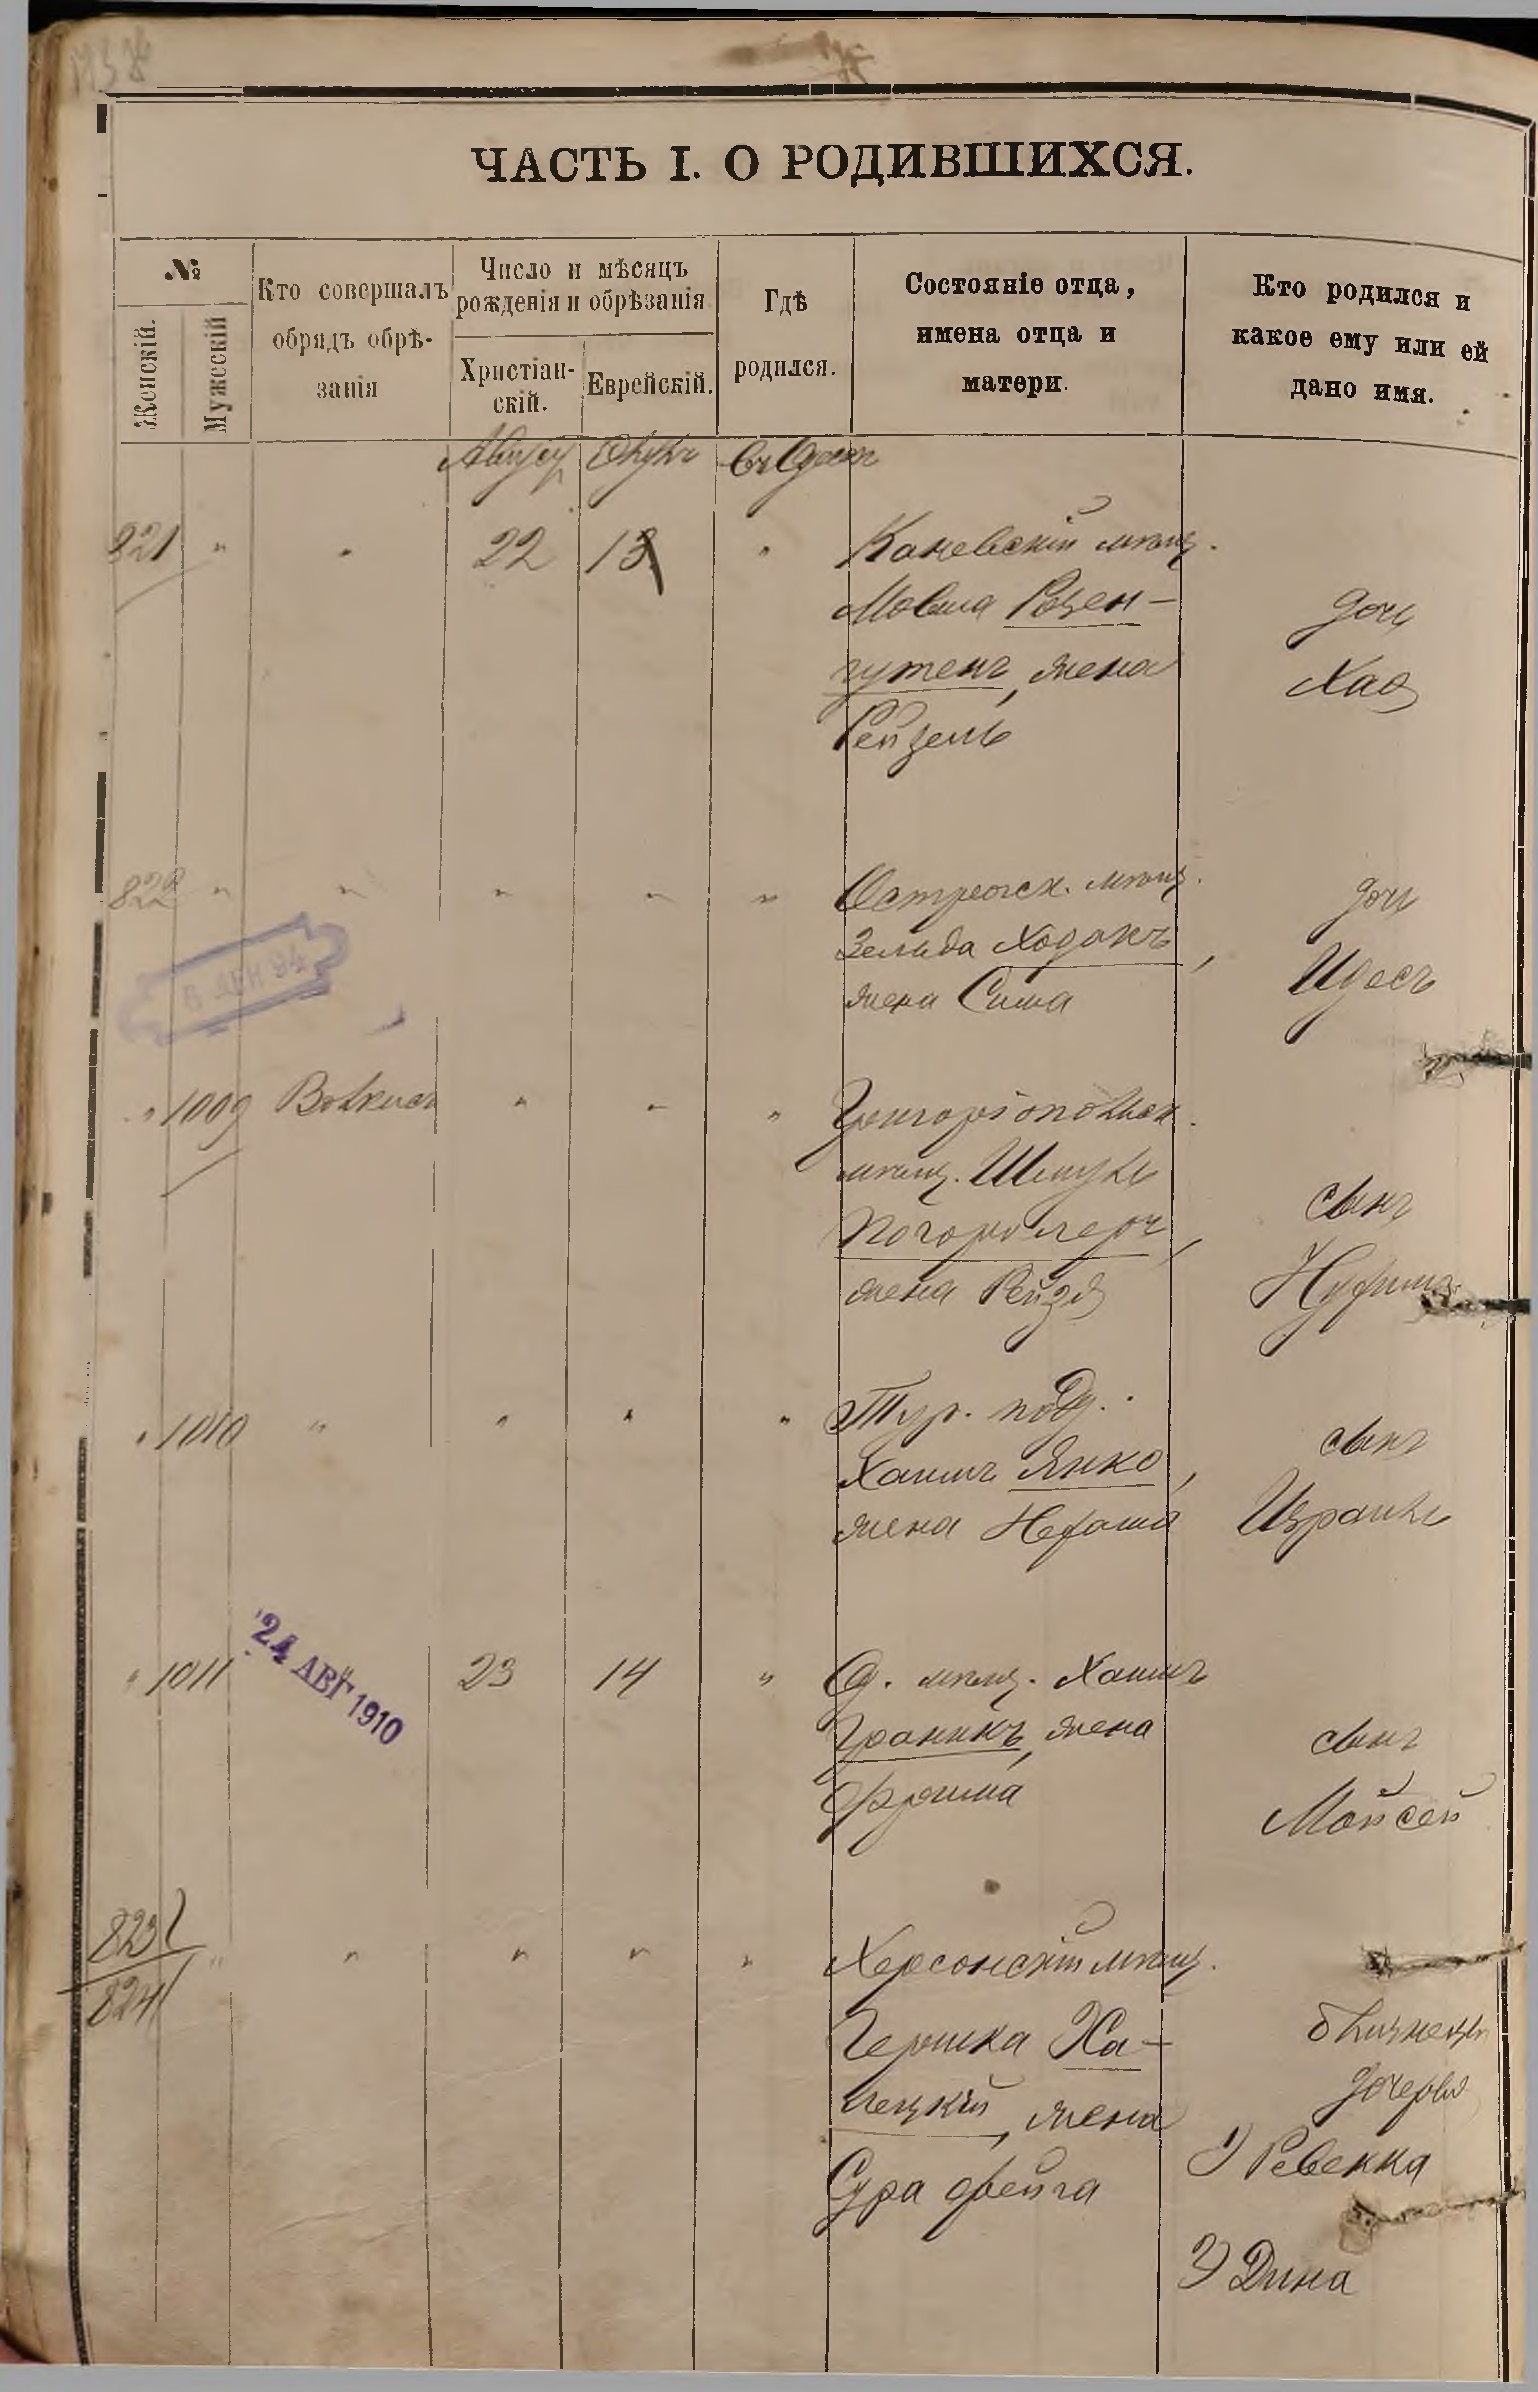 ЧАСТЬ I. О РОДИВШИХСЯ.
№
Женскій.
Мужескій
Кто совершалъ
обрядъ обрѣ-
занія
Число и мѣсяцъ
рожденія и обрѣзанія
Христіан-
скій.
Еврейскій.
Гдѣ
родился.
Состояніе отца,
имена отца и
матери.
Кто родился и
какое ему или ей
дано имя.
Август Элулъ въ Одессѣ
821 " " 22 13 " Каневскій мѣщ.
Мовша Розен-
гутенъ, жена
Рейзель
дочь
Хая
822 " " " " " Острожск. мѣщ.
Зельда Ходакъ,
жена Сима
дочь
Идесъ
" 1009 " " " Григоріопольск.
мѣщ. Шмуль
жена Рейзя
сынъ
" 1010 " " " " Тур. под.
Хаимъ Янко,
жена
сынъ
Израиль
" 1011 " 23 14 " Од. мѣщ. Хаимъ
Граникъ, жена
Фрима
сынъ
Мойсей
24 АВГ 1910
823
824 " " " " " Херсонскій мѣщ.
Гершка Ха-
лецкій, жена
Сура Фейга
близнецы
дочери
1) Ревекка
2) Дина